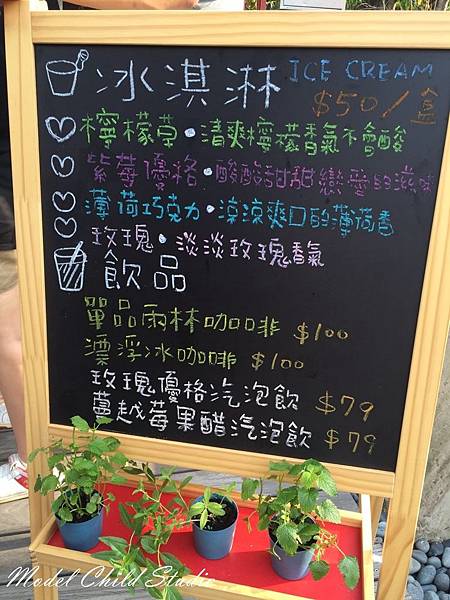 冰淇淋 ICE CREAM
$50/盒
檸檬草・清爽檸檬香氣不會酸
紫莓優格・酸酸甜甜戀愛的滋味
薄荷巧克力・涼涼爽口的薄荷香
玫瑰・淡淡玫瑰香氣
飲品
單品雨林咖啡 $100
漂浮冰咖啡 $100
玫瑰優格汽泡飲 $79
蔓越莓果醋汽泡飲 $79
Model Child Studio